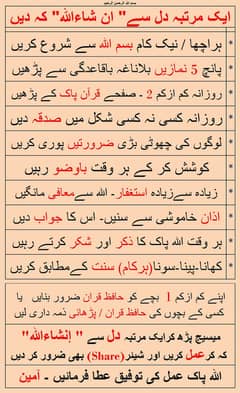 بسم اللہ الرحمن الرحیم
ایک مرتبہ دل سے" ان شاءاللہ" کہ دیں
ہراچھا / نیک کام بسم اللہ سے شروع کریں
پانچ 5 نمازیں بلاناغہ باقاعدگی سے پڑھیں
روزانہ کم ازکم 2 - صفحے قرآن پاک کے پڑھیں
روزانہ کسی نہ کسی شکل میں صدقہ دیں
لوگوں کی چھوٹی بڑی ضرورتیں پوری کریں
کوشش کر کے ہر وقت باوضو رہیں
زیادہ سےزیادہ استغفار - اللہ سےمعافی مانگیں
اذان خاموشی سے سنیں- اس کا جواب دیں
ہر وقت اللہ پاک کا ذکر اور شکر کرتے رہیں
کھانا-پینا-سونا(ہرکام) سنت کےمطابق کریں
اپنے کم ازکم 1 بچے کو حافظ قران ضرور بنائیں یا
کسی کے بچوں کی حافظ قران / پڑھائی ذمہ داری لیں
میسیج پڑھ کرایک مرتبہ دل سے " اِنشاءاللہ"
کہ کرعمل کریں اور شیئر(Share) بھی ضرور کر دیں
اللہ پاک عمل کی توفیق عطا فرمائیں - آمین